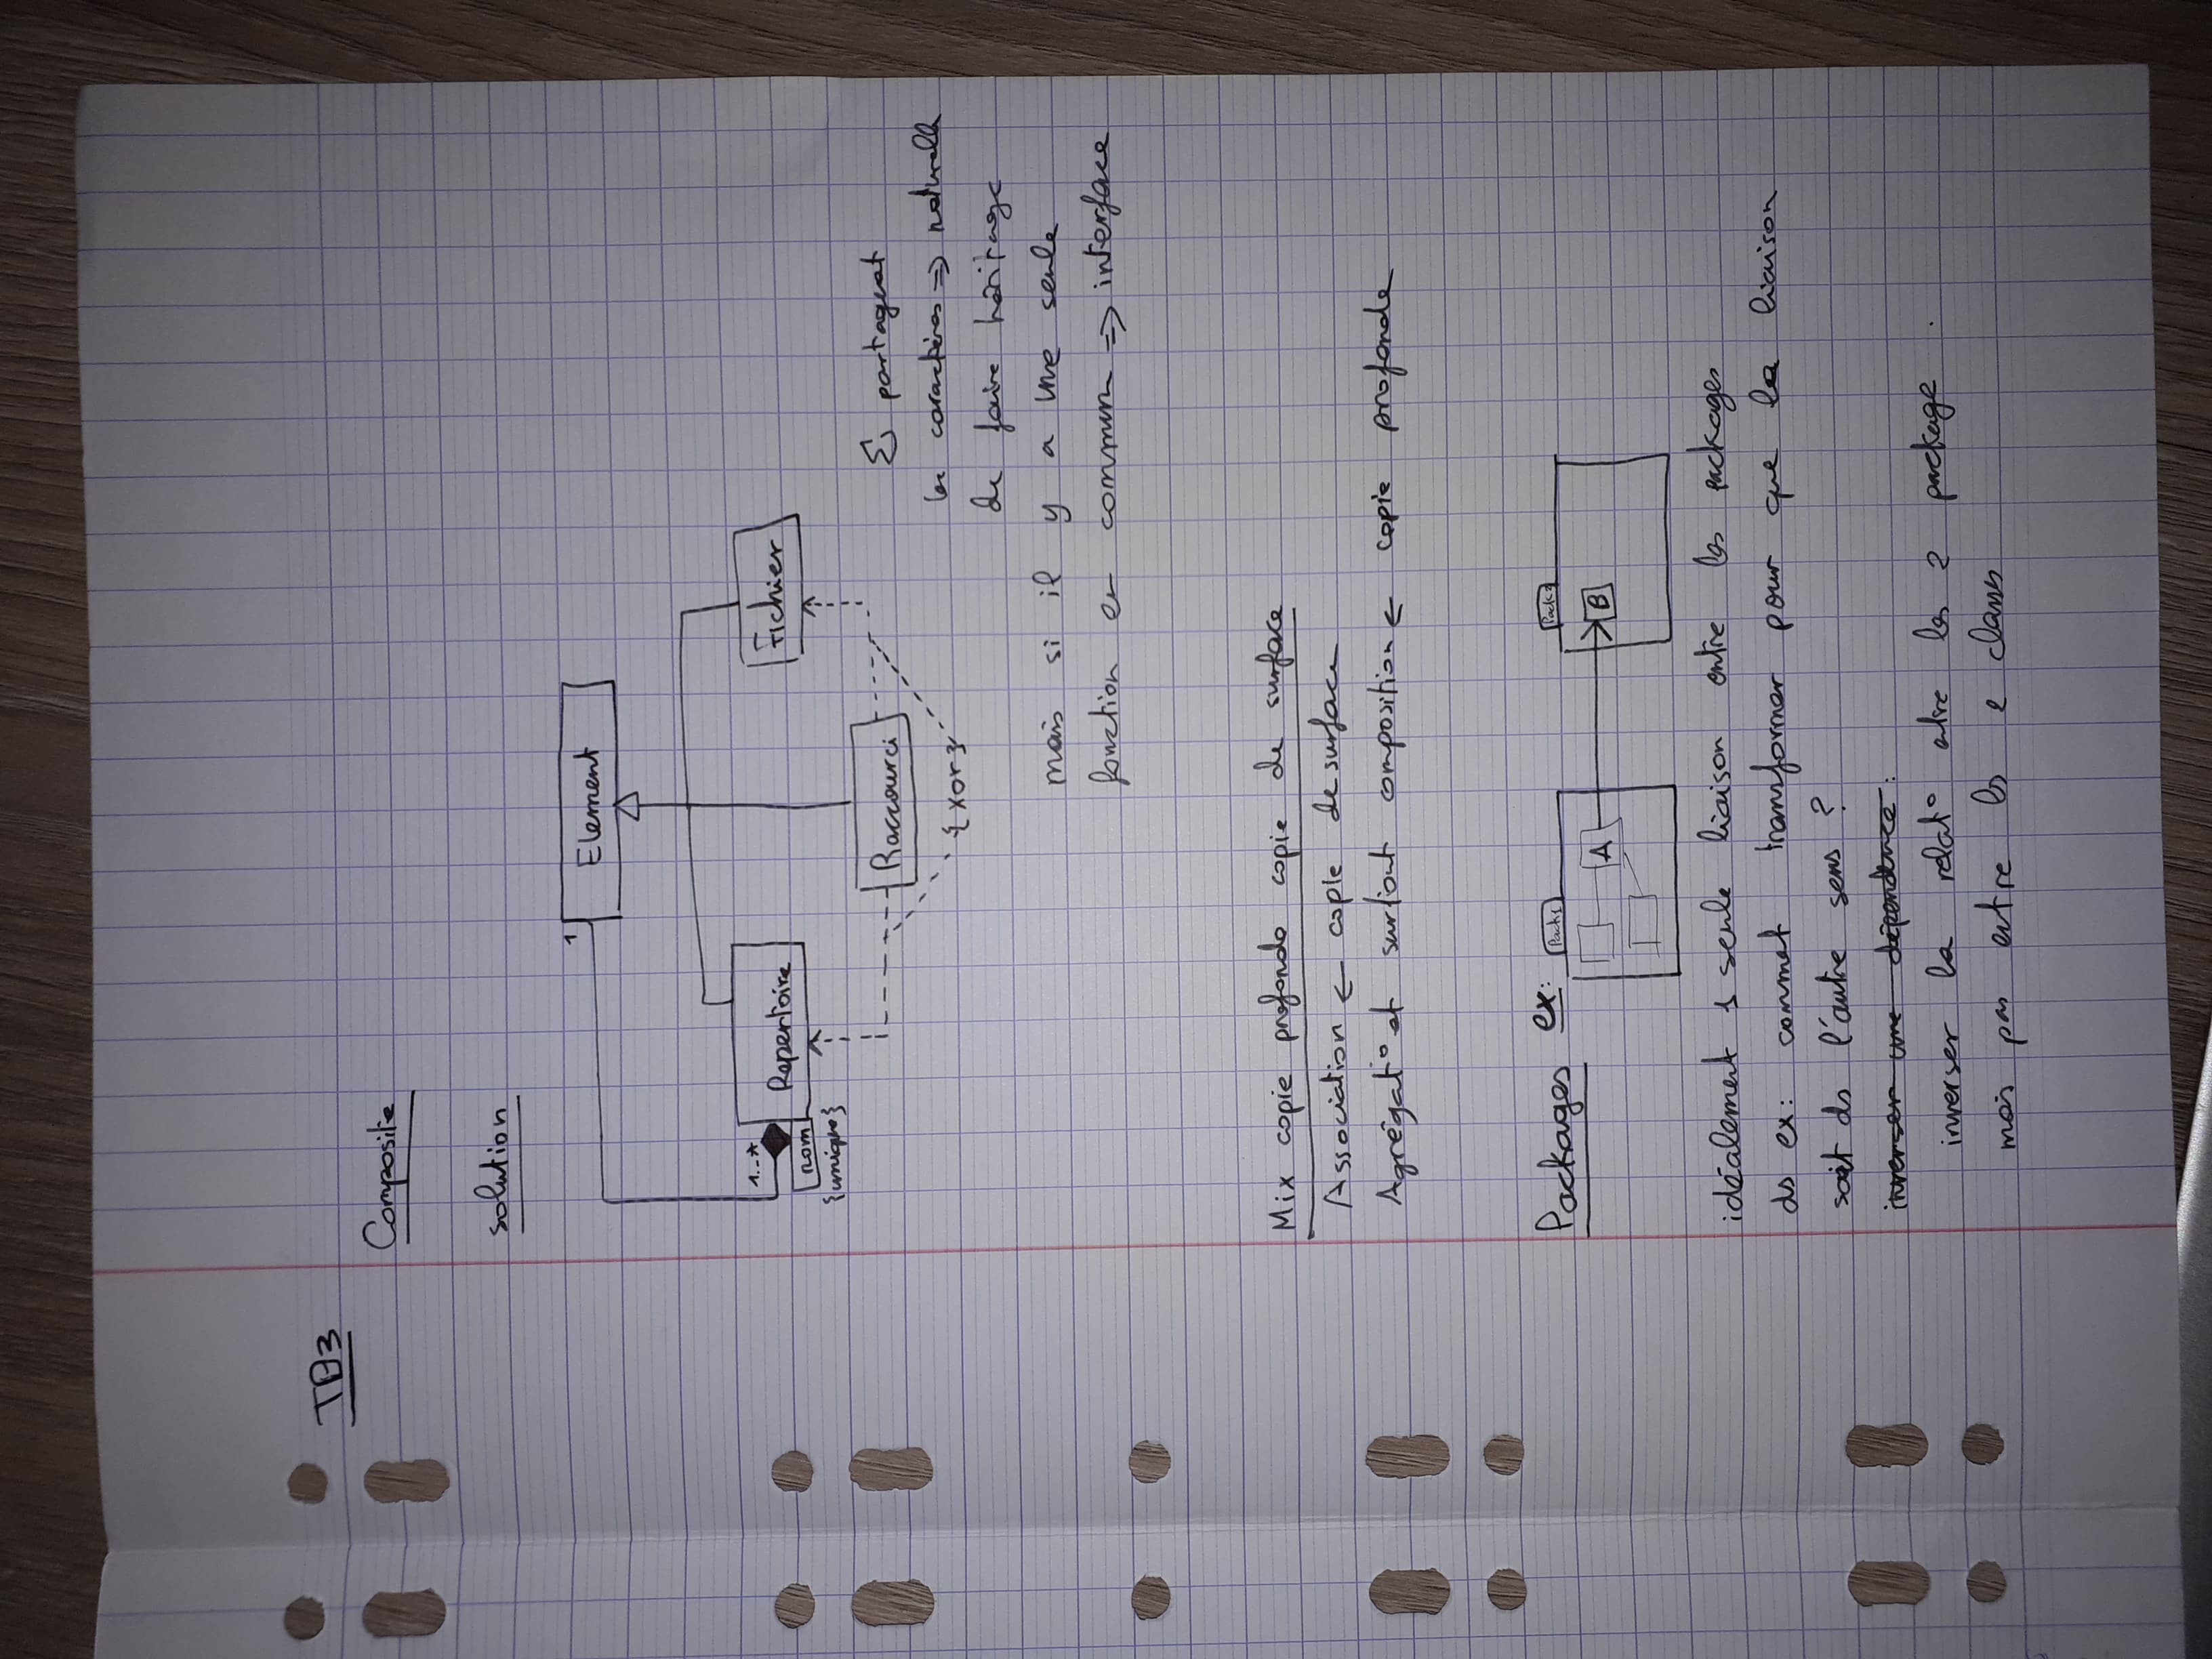 TD3
Composite
solution
Element
1
1..*
Repertoire
Fichier
nom
{unique}
Raccourci
{xor}
Σ partagent
les caractères => naturelle
de faire héritage
mais si il y a une seule
fonction en commun => interface
Mix copie profonde copie de surface
Association ← copie de surface
Agrégat° et surtout composition ← copie profonde
Packages ex:
Pack1
A
Pack2
B
idéalement 1 seule liaison entre les packages
ds ex: comment transformer pour que la liaison
soit ds l'autre sens ?
inverser une dépendance :
inverser la relat° entre les 2 package.
mais pas entre les 2 class